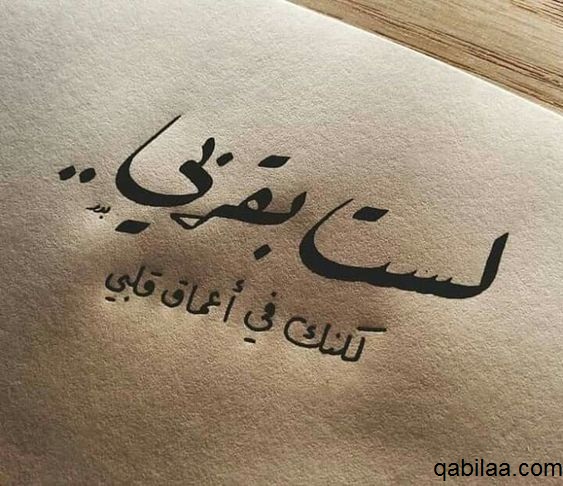 لست بقربي ..
بدر
لكنك في أعماق قلبي
qabilaa.com